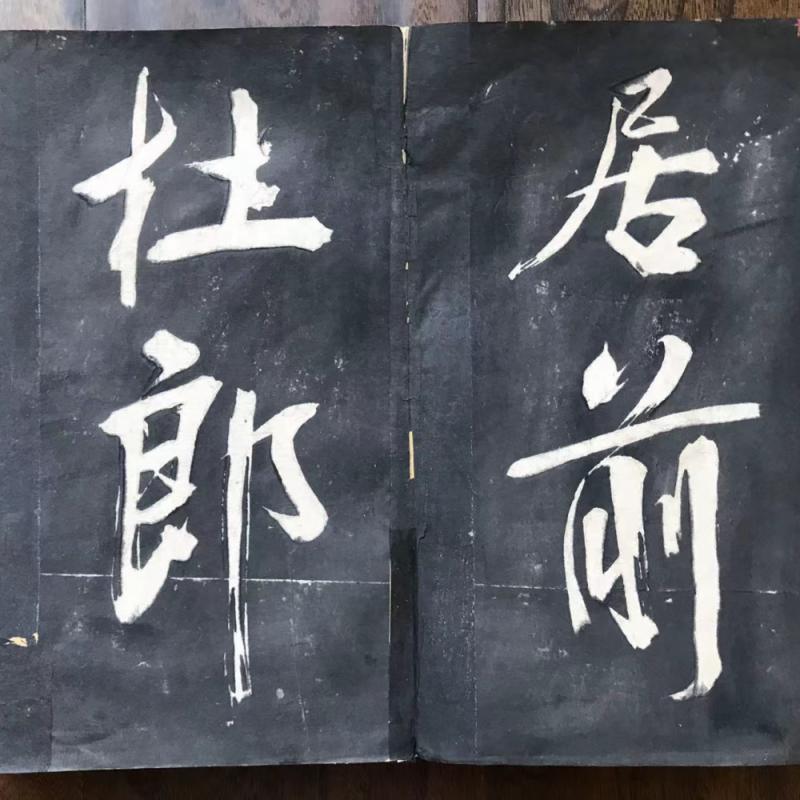 居前
杜郎